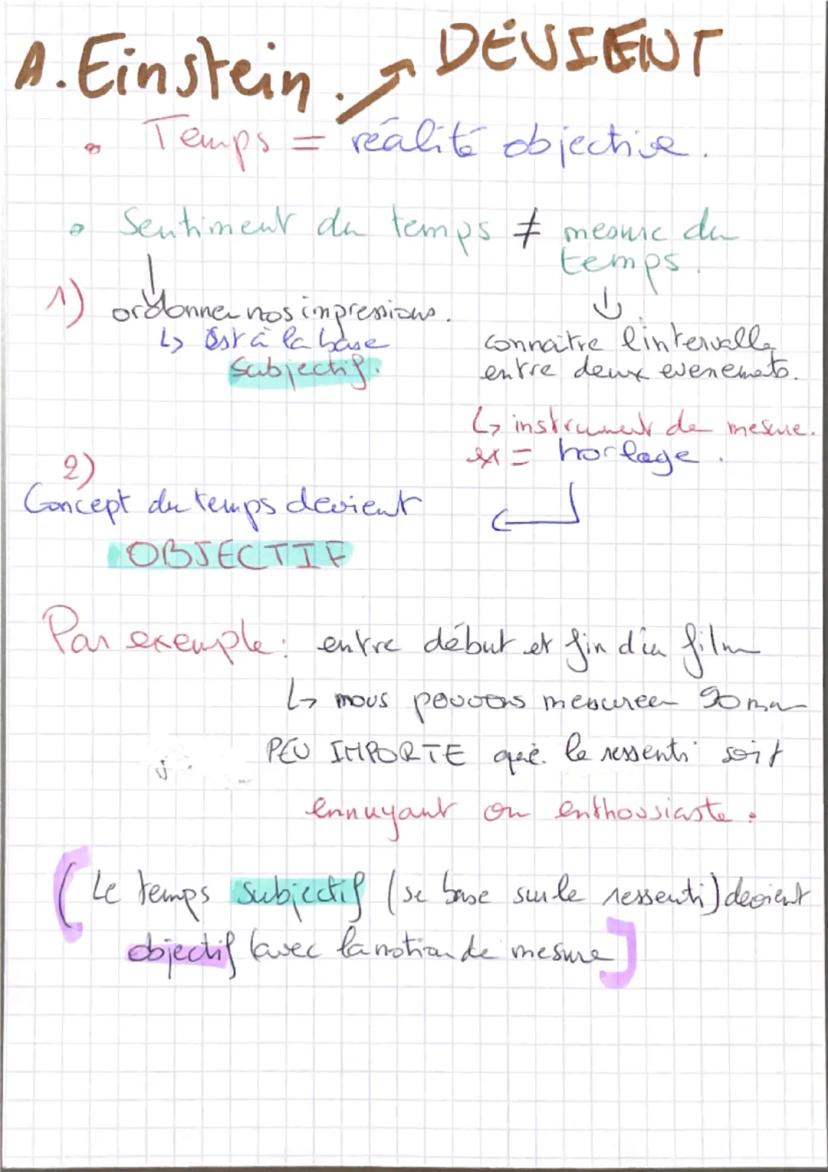 A. Einstein. ↗ DEVIENT
• Temps = réalité objective.
• Sentiment du temps ≠ mesure du
temps.
1) ordonner nos impressions.
↳ Est à la base
subjectif.
connaître l'intervalle
entre deux evenements.
↳ instrument de mesure.
ex = horloge.
2)
Concept du temps devient
OBJECTIF
Par exemple: entre début et fin d'un film
↳ nous pouvons mesurer 90 mn
PEU IMPORTE que le ressenti soit
ennuyant ou enthousiaste.
(Le temps subjectif (se base sur le ressenti) devient
objectif (avec la notion de mesure]